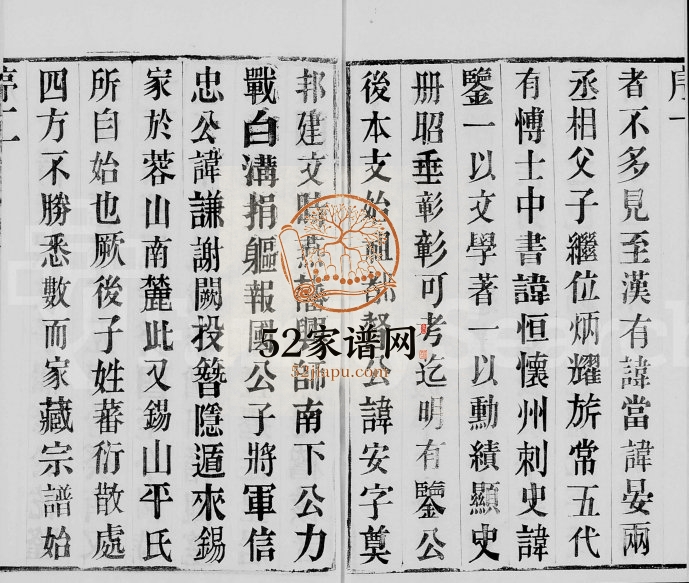 序一
者不多見至漢有諱當諱晏兩
丞相父子繼位炳耀旂常五代
有慱士中書諱恒懷州刺史諱
鑒一以文學著一以勳績顯史
册昭垂彰彰可考迄明有鑒公
後本支始祖都督公諱安字奠
邦建文時燕藩興師南下公力
戰白溝捐軀報國公子將軍信
忠公諱謙謝闕投簪隱遁來錫
家於蓉山南麓此又錫山平氏
所自始也厥後子姓蕃衍散處
四方不勝悉數而家藏宗譜始
序二
52家谱网
52jiapu.com